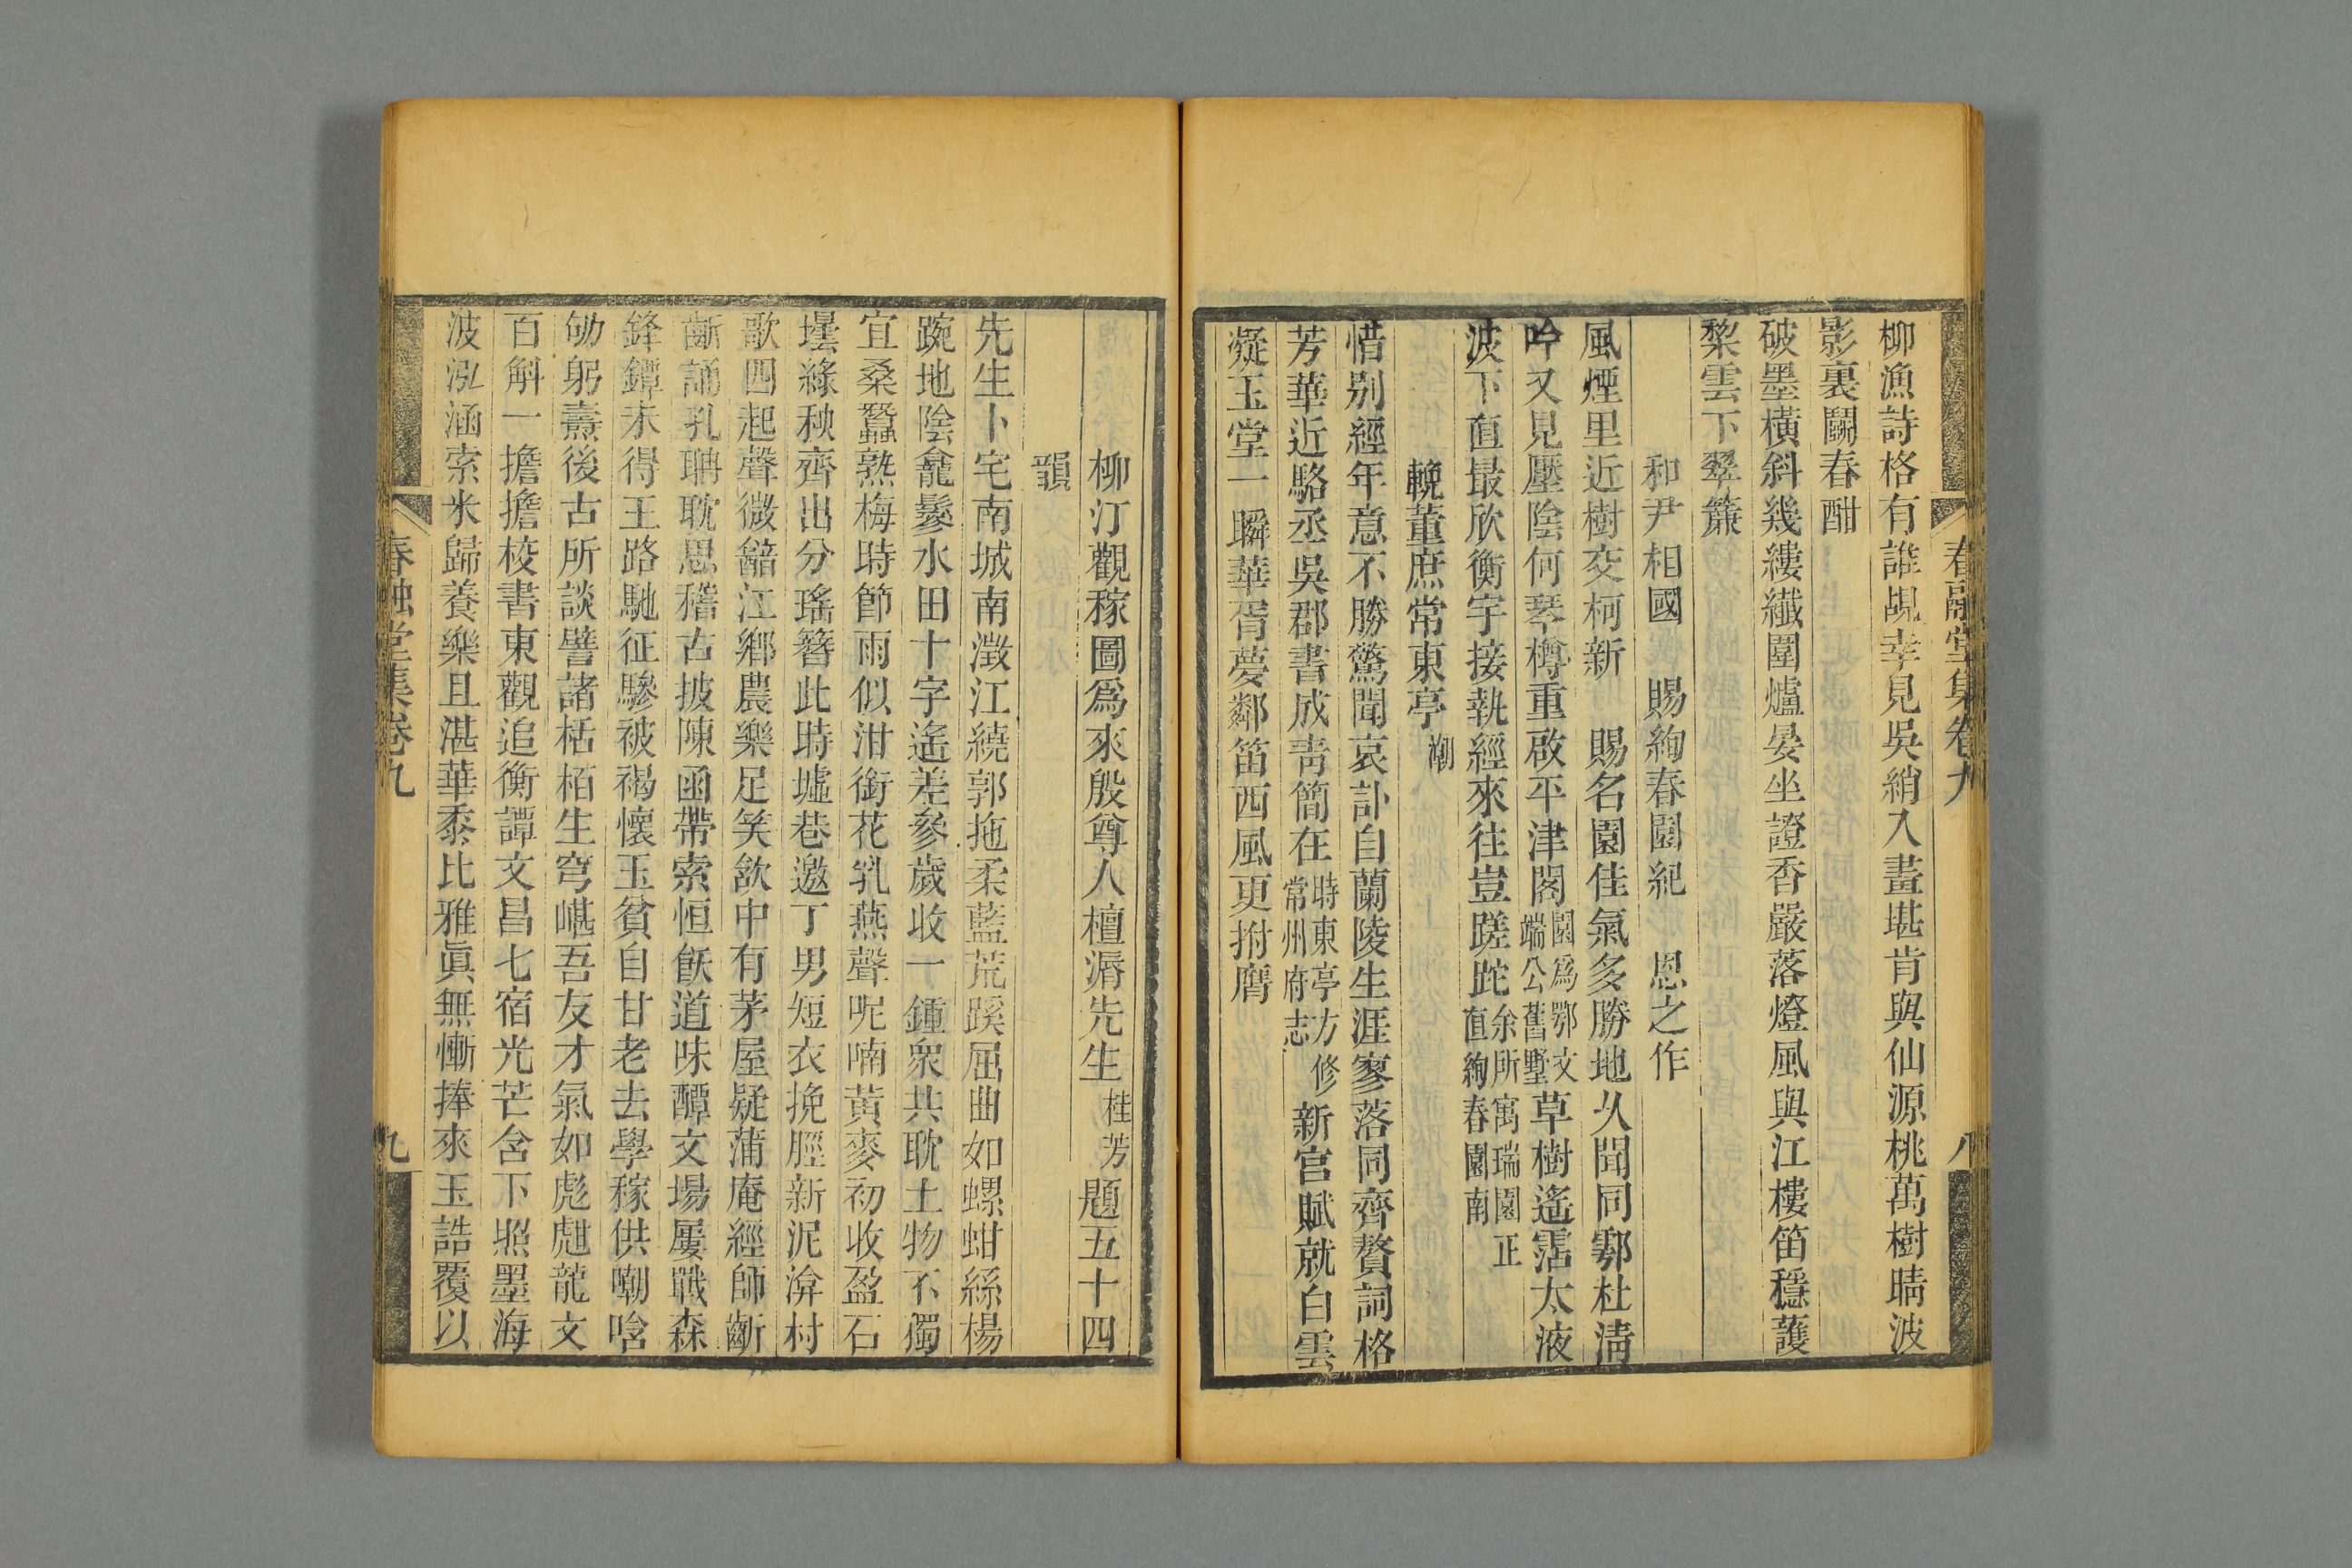 春融堂集卷九
八
柳漁詩格有誰覘幸見吳綃入畫堪肯與仙源桃萬樹晴波
影裏鬬春酣
破墨橫斜幾縷纖圍爐晏坐證香嚴落燈風與江樓笛穩護
棃雲下翠簾
和尹相國 賜絢春園紀 恩之作
風煙里近樹交柯新 賜名園佳氣多勝地久聞同鄠杜淸
吟又見壓陰何琴樽重啟平津閣園爲鄂文端公舊墅草樹遙霑太液
波下直最欣衡宇接執經來往豈蹉跎余所寓瑞園正直絢春園南
輓董庶常東亭潮
惜别經年意不勝驚聞哀訃自蘭陵生涯寥落同齊贅詞格
芳華近駱丞吳郡書成靑簡在時東亭方修常州府志新宫賦就白雲
凝玉堂一瞬華胥夢鄰笛西風更拊膺
柳汀觀稼圖爲來殷尊人檀漘先生桂芳題五十四
韻
先生卜宅南城南澂江繞郭拖柔藍荒蹊屈曲如螺蚶絲楊
踠地陰龕鬖水田十字遙差參歲收一鍾衆共耽土物不獨
宜桑蠶熟梅時節雨似泔銜花乳燕聲呢喃黃麥初收盈石
壜綠秧齊出分瑤簪此時墟巷邀丁男短衣挽脛新泥渰村
歌四起聲微韽江鄉農樂足笑歛中有茅屋疑蒲庵經師齗
齗誦乳聃耽思稽古披陳函帶索恒飫道味醰文場屢戰森
鋒鐔未得王路馳征驂被褐懷玉貧自甘老去學稼供嘲唅
劬躬燾後古所談譬諸栝栢生穹嵁吾友才氣如彪虪龍文
百斛一擔擔校書東觀追衡譚文昌七宿光芒含下照墨海
波泓涵索米歸養樂且湛華黍比雅眞無慚捧來玉誥覆以
春融堂集卷九
九